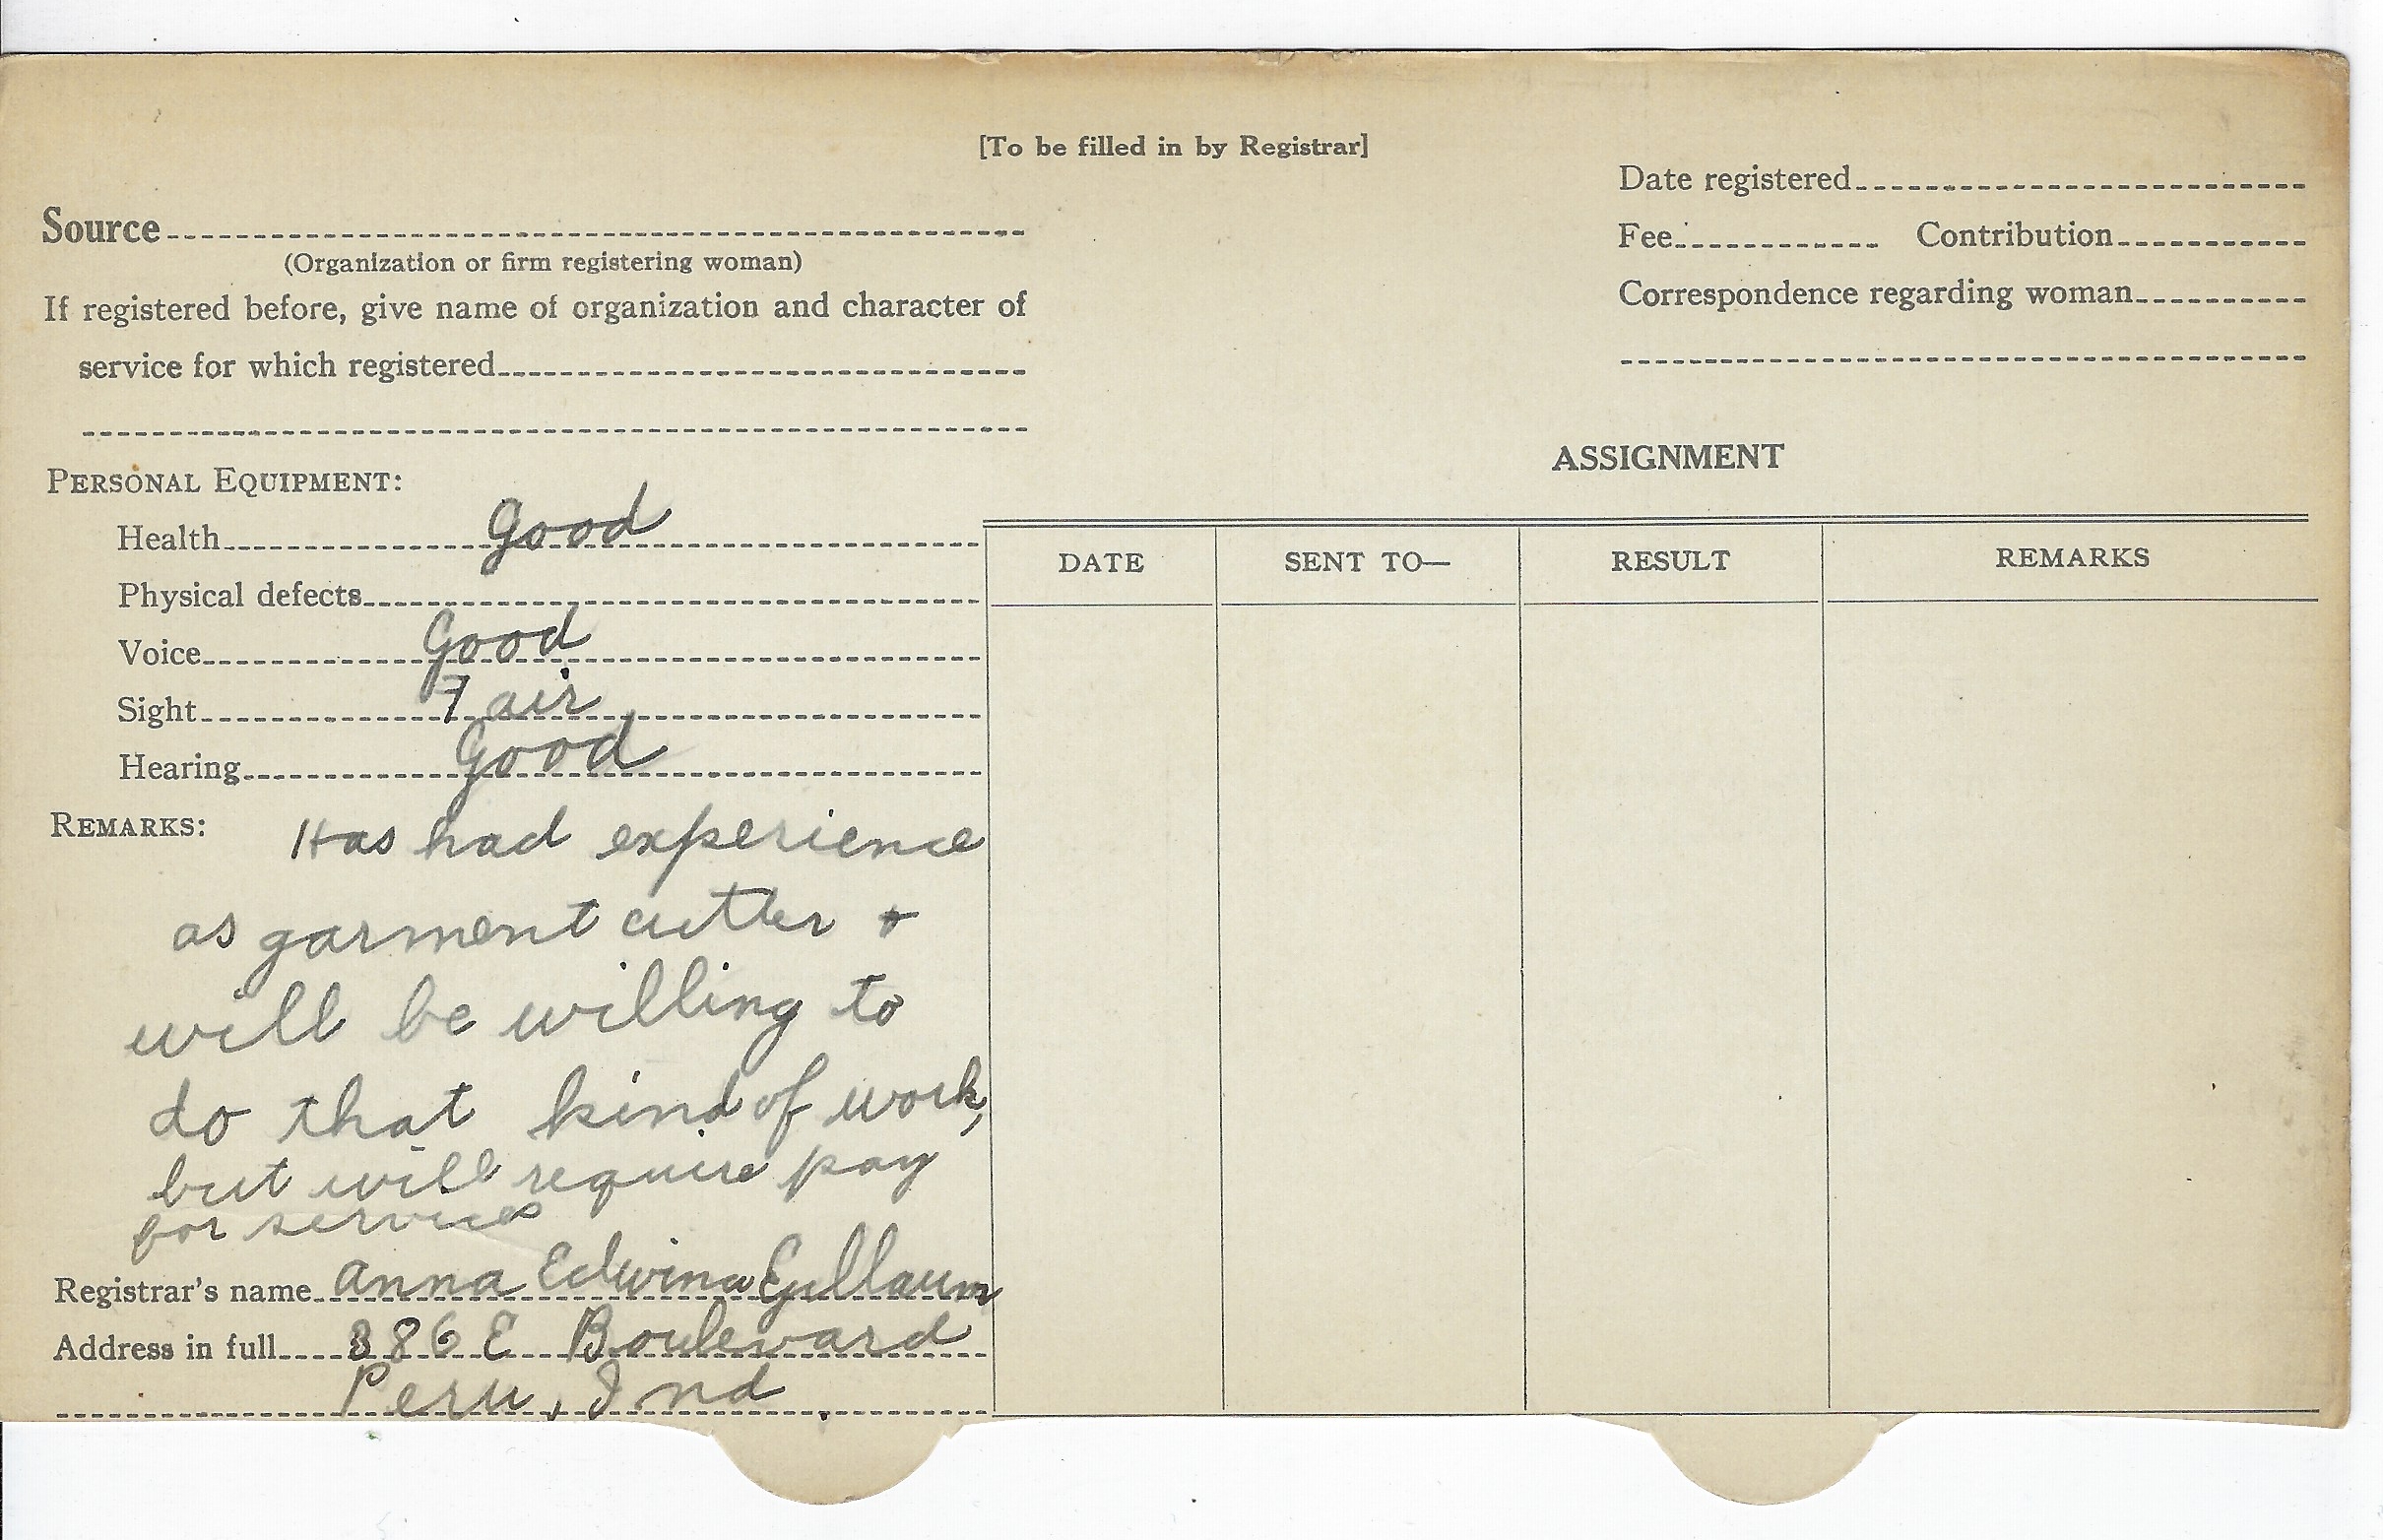 [To be filled in by Registrar]
Date registered
Source
(Organization or firm registering woman)
Fee Contribution
If registered before, give name of organization and character of
service for which registered
Correspondence regarding woman
PERSONAL EQUIPMENT:
Health Good
Physical defects
Voice Good
Sight Fair
Hearing Good
REMARKS: Has had experience
as garment cutter +
will be willing to
do that kind of work,
but will require pay
for services
Registrar's name Anna Edwina
Address in full 386 E Boulevard
Peru, Ind
ASSIGNMENT
DATE SENT TO— RESULT REMARKS